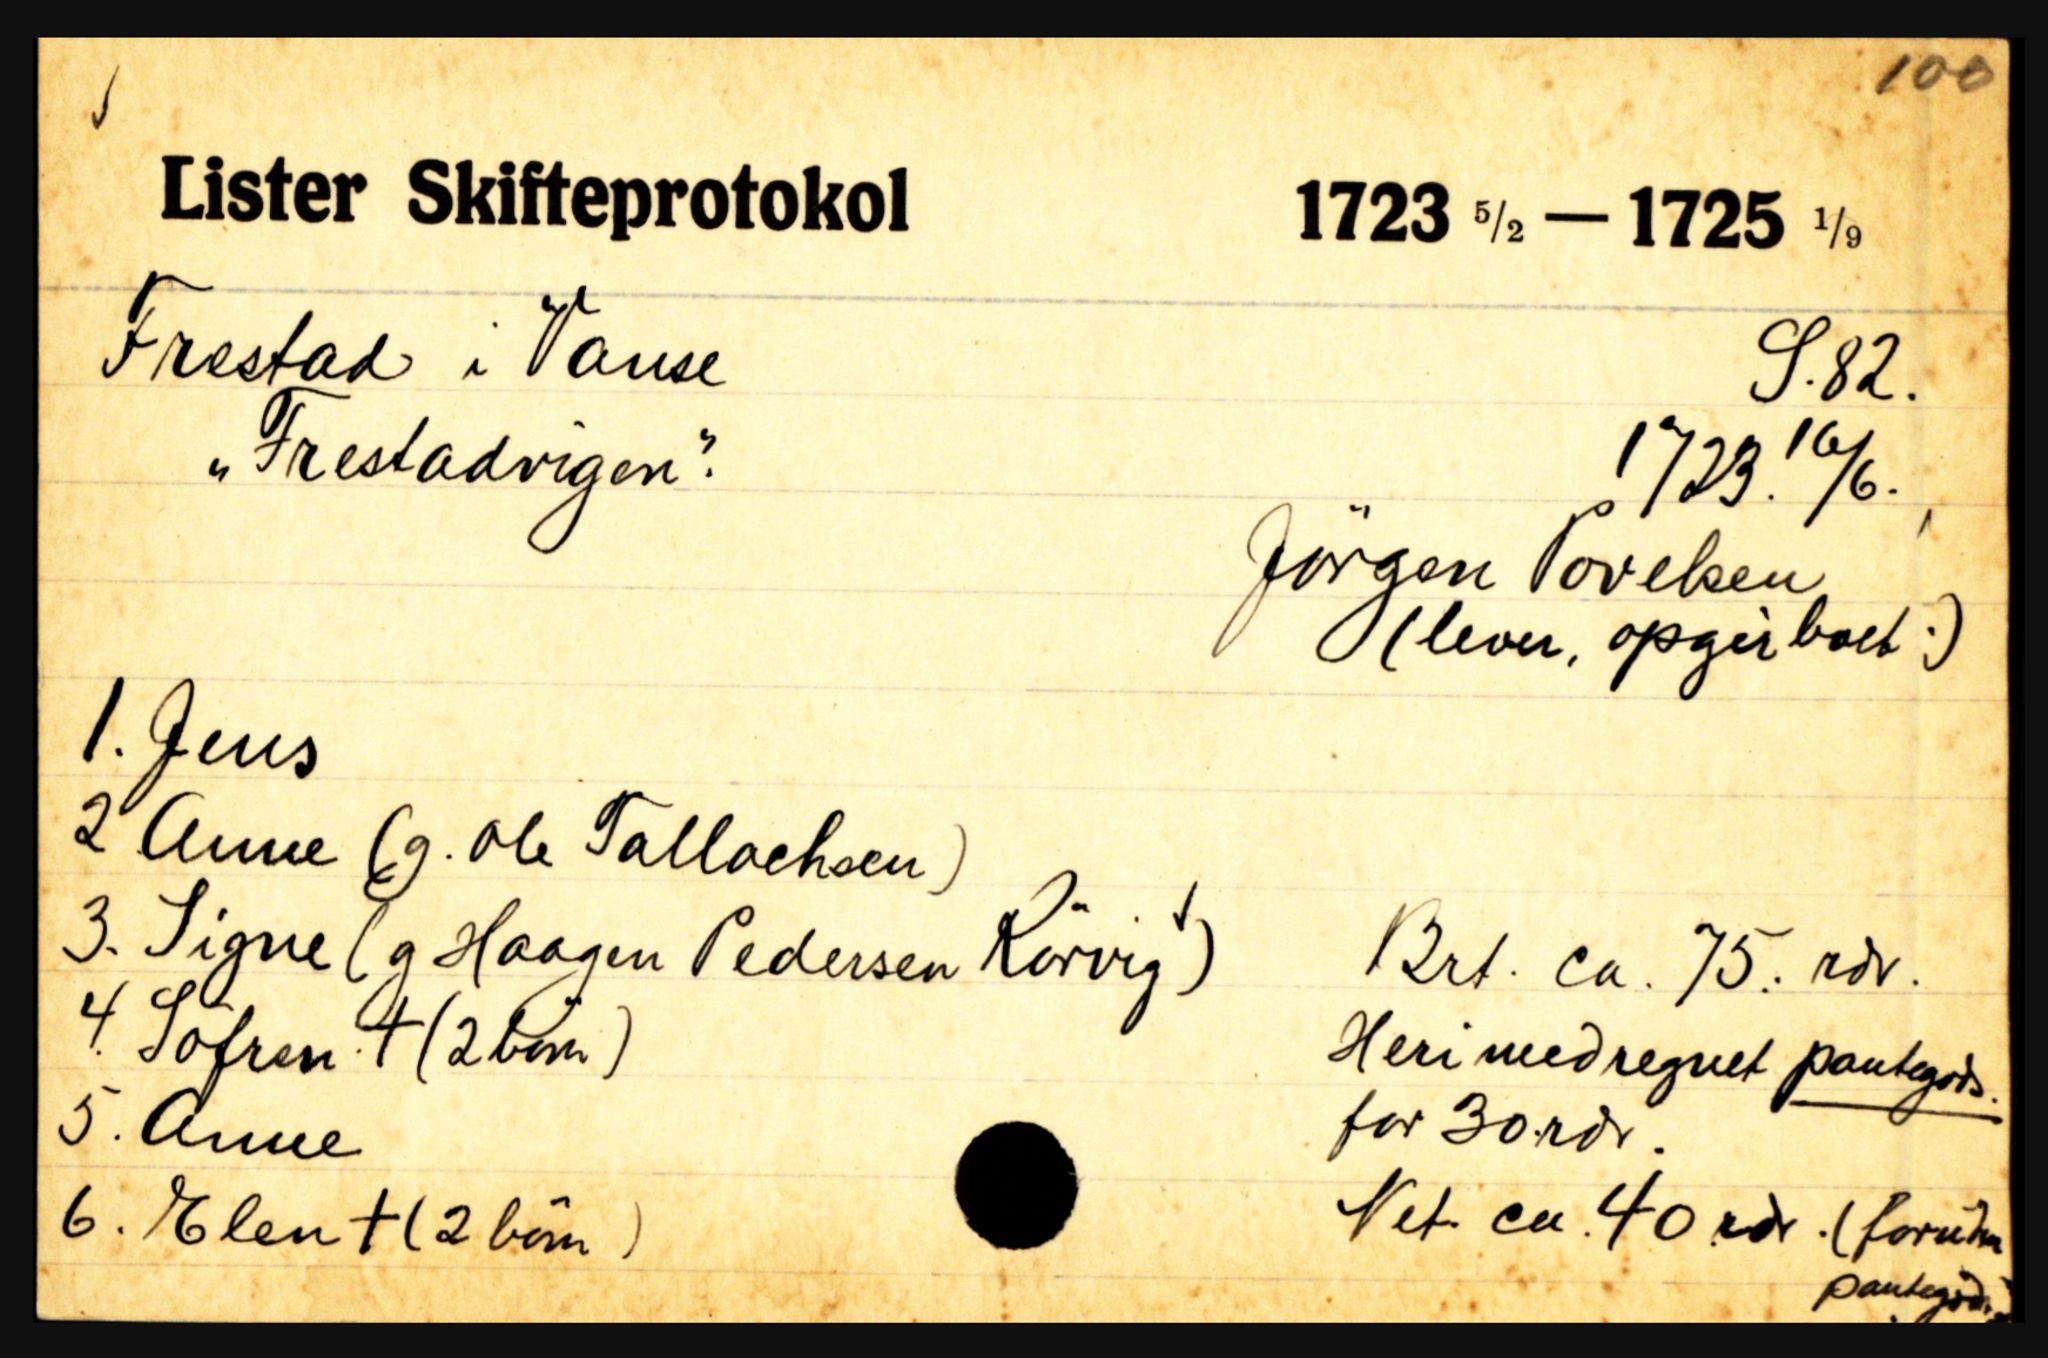 100
Lister Skifteprotokol 1723 5/2 — 1725 1/9
Frestad i Vanse
S. 82.
„Frestadvigen“.
1723. 16/6.
Jörgen Povelsen
(lever, opgir boet :)
1. Jens
2 Anne (g. Ole Tallachsen)
3. Signe (g Haagen Pedersen Rörvig)
Brt. ca. 75. rdr.
4. Söfren. † (2 börn)
Heri medregnet pantegods.
5. Anne
for 30 rdr.
6. Elen † (2 börn)
Net. ca. 40 rdr. (foruden
pantegods.